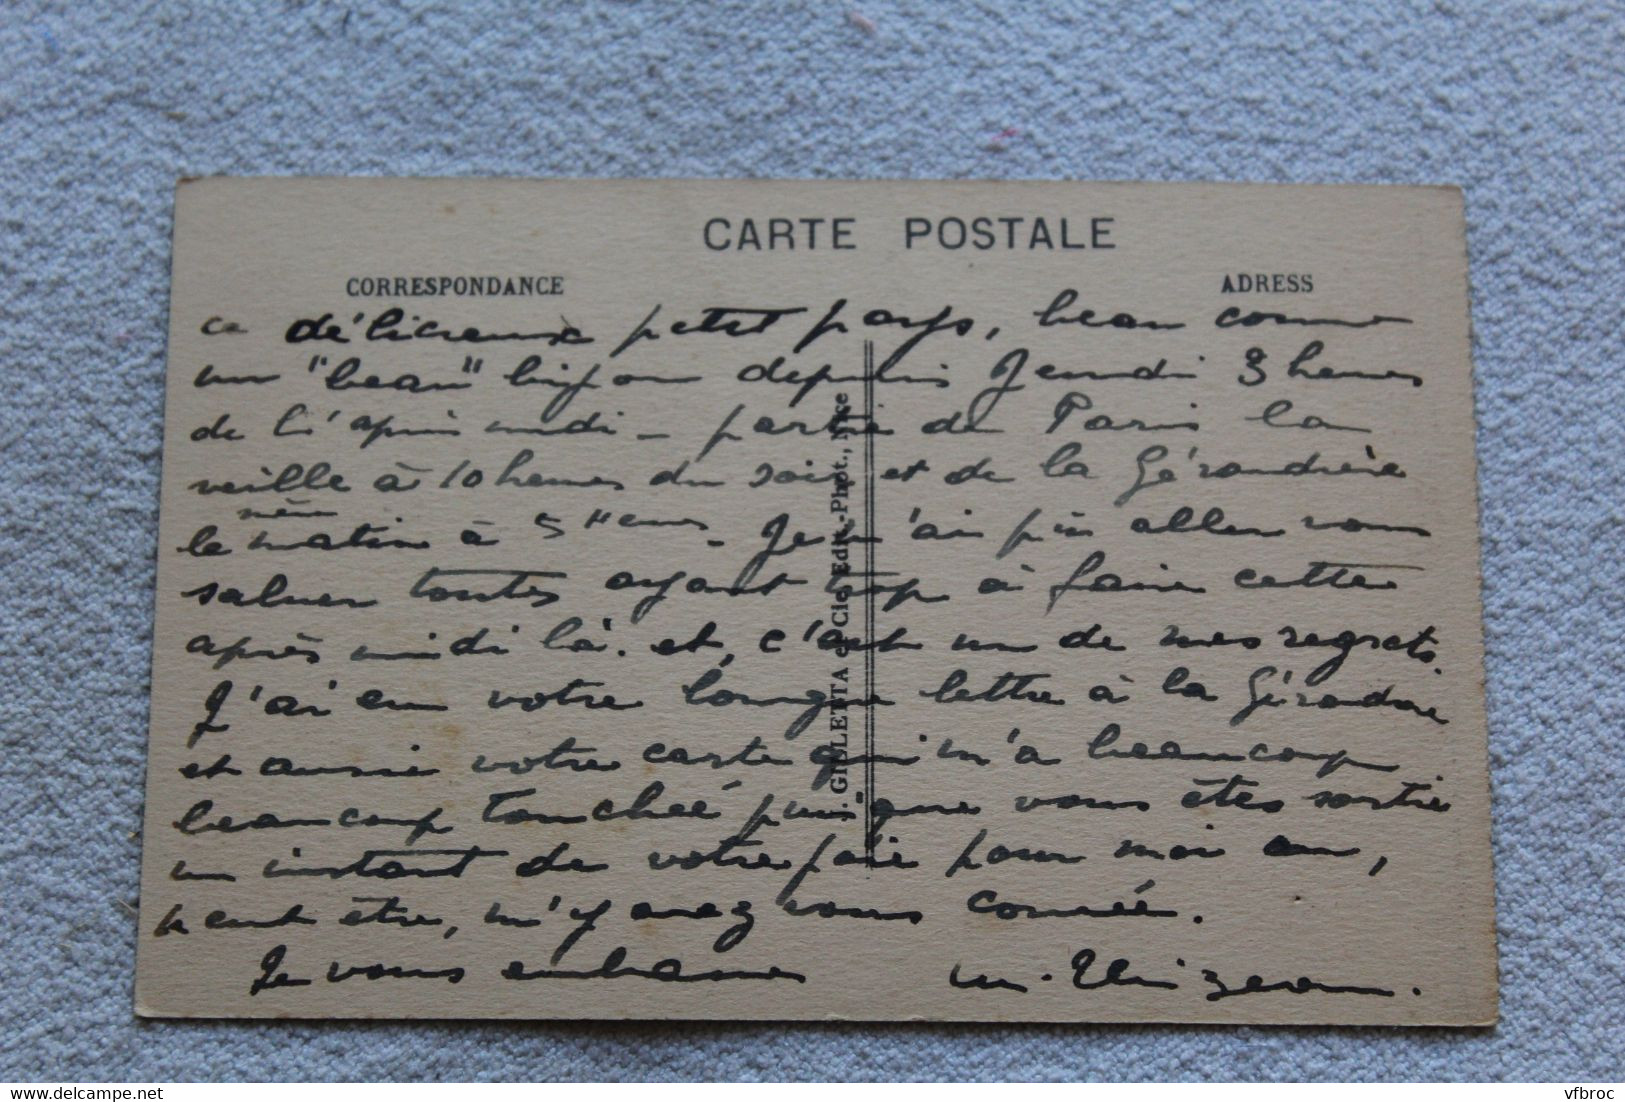 CARTE POSTALE
CORRESPONDANCE
ADRESS
ce délicieux petit pays, beau comme
un "beau" bijou depuis Jeudi 3 heures
de l'après midi - partie de Paris la
veille à 10 heures du soir et de la Gérandrère
le même matin à 5 Heures - Je n'ai pu aller vous
saluer toutes ayant trop à faire cette
après midi là. et, c'est un de mes regrets.
J'ai eu votre longue lettre à la
et aussi votre carte qui m'a beaucoup
beaucoup touchée puisque vous êtes sortie
un instant de votre joie pour moi ou,
peut être, m'y avez vous conviée.
Je vous embrasse
J. GILLETTA & Cie, Edit.-Phot., Nice
delcampe.net
vfbroc